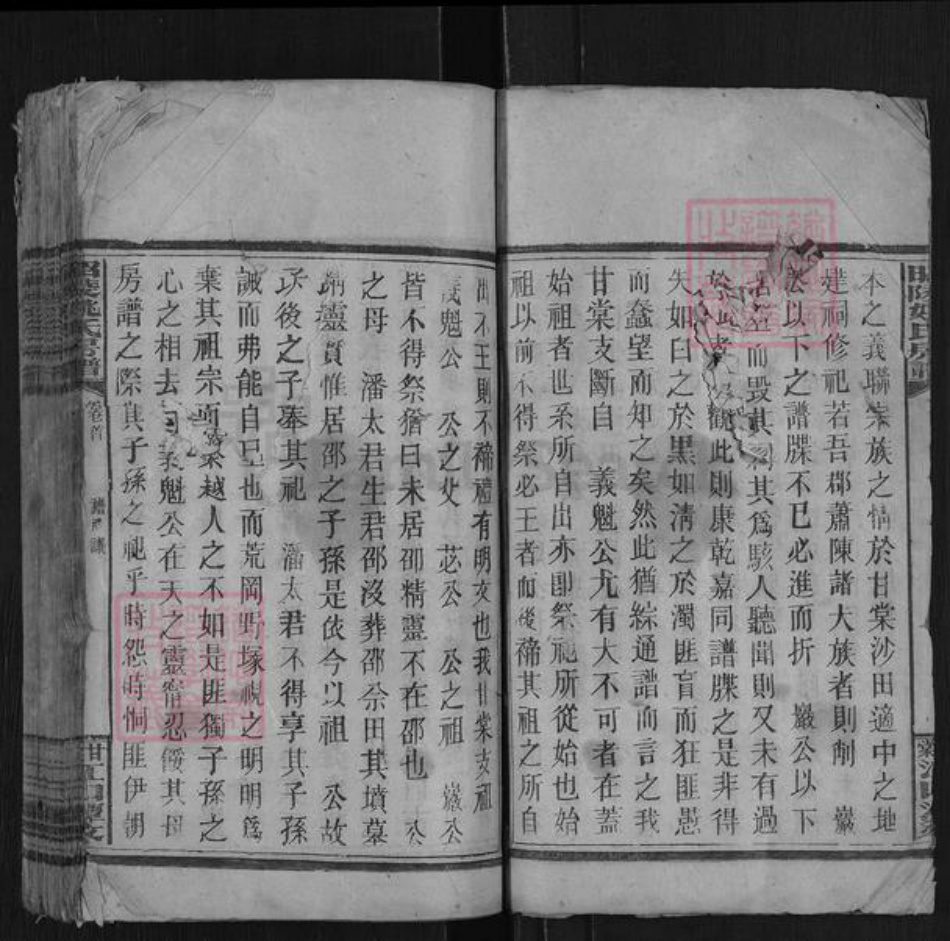 本之義聯宗族之情於甘棠沙田適中之地
建祠修祀若吾郡蕭陳諸大族者則剷 巖
公以下之譜牒不已必進而折 巖公以下
而毀其祠其為駭人聽聞則又未有過
於此者 觀此則康乾嘉同譜牒之是非得
失如白之於黑如清之於濁匪盲而狂匪愚
而蠢望而知之矣然此猶綜通譜而言之我
甘棠支斷自 義魁公尤有大不可者在蓋
始祖者世系所自出亦卽祭祀所從始也始
祖以前不得祭必王者而後禘其祖之所自
出不王則不禘禮有明文也我甘棠支祖
義魁公 公之父 苾公 公之祖 巖公
皆不得祭猶曰未居邵精靈不在邵也 公
之母 潘太君生君邵沒葬邵佘田其墳墓
精靈實惟居邵之子孫是依今以祖 公故
承後之子奉其祀 潘太君不得享其子孫
誠而弗能自已也而荒岡野塚視之明明為
棄其祖宗而秦越人之不如是匪獨子孫之
心之相去 義魁公在天之靈甯忍餒其母
房譜之際其子孫之祀乎時怨時恫匪伊朝
昭陵姚氏房譜
卷首
譜議